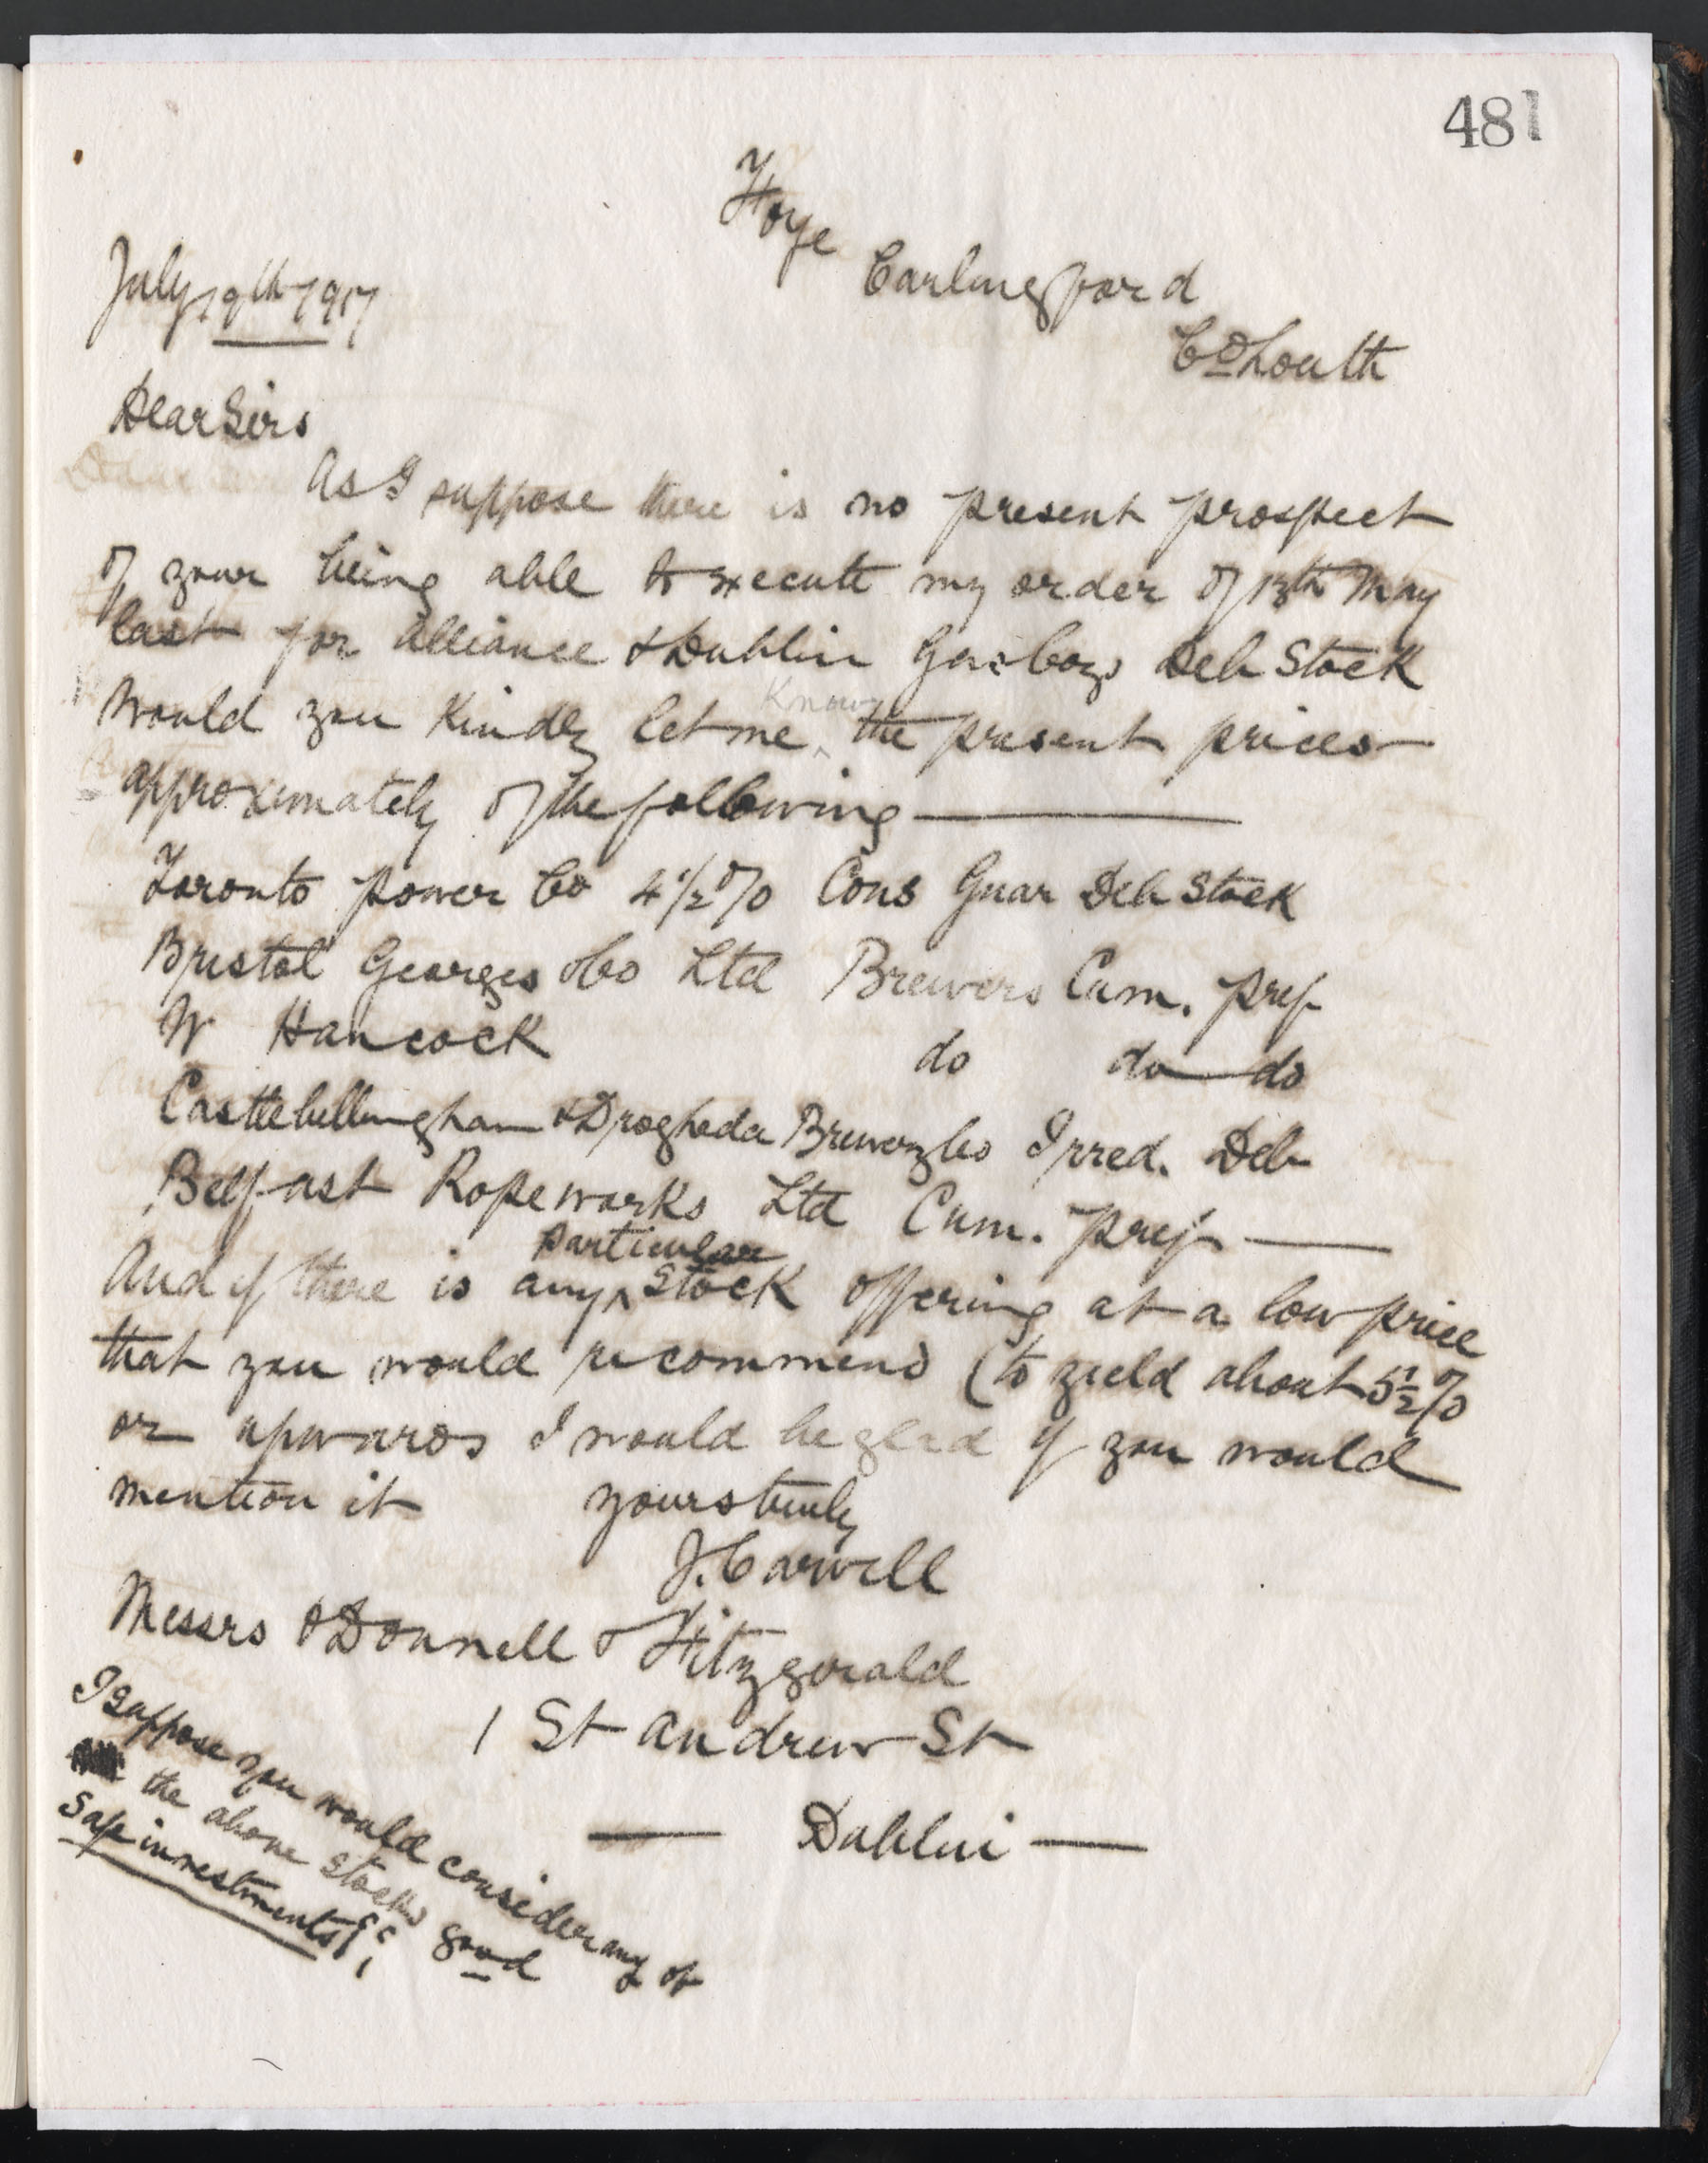 481
Foye
Carlingford
Co Louth
July 19th 1917
Dear Sirs
As I suppose there is no present prospect
of your being able to execute my order of 13th May
last for Alliance & Dublin Gas Coys Deb Stock
Would you kindly let me know the present prices
approximately of the following
Toronto power Co 4 1/2 % Cons Guar Deb Stock
Bristol Georges & Co Ltd Brewers Cum. pref
W Hancock do do do
Castlebellingham & Drogheda Brewery Co Irred. Deb
Belfast Ropeworks Ltd Cum. pref
And if there is any particular Stock offering at a low price
that you would recommend (to yield about 5 1/2 %
or upwards I would be glad if you would
mention it yours truly
J. Carvill
Messrs O'Donnell & Fitzgerald
1 St Andrew St
Dublin
I suppose you would consider any of
the above Stocks good
Safe investments?